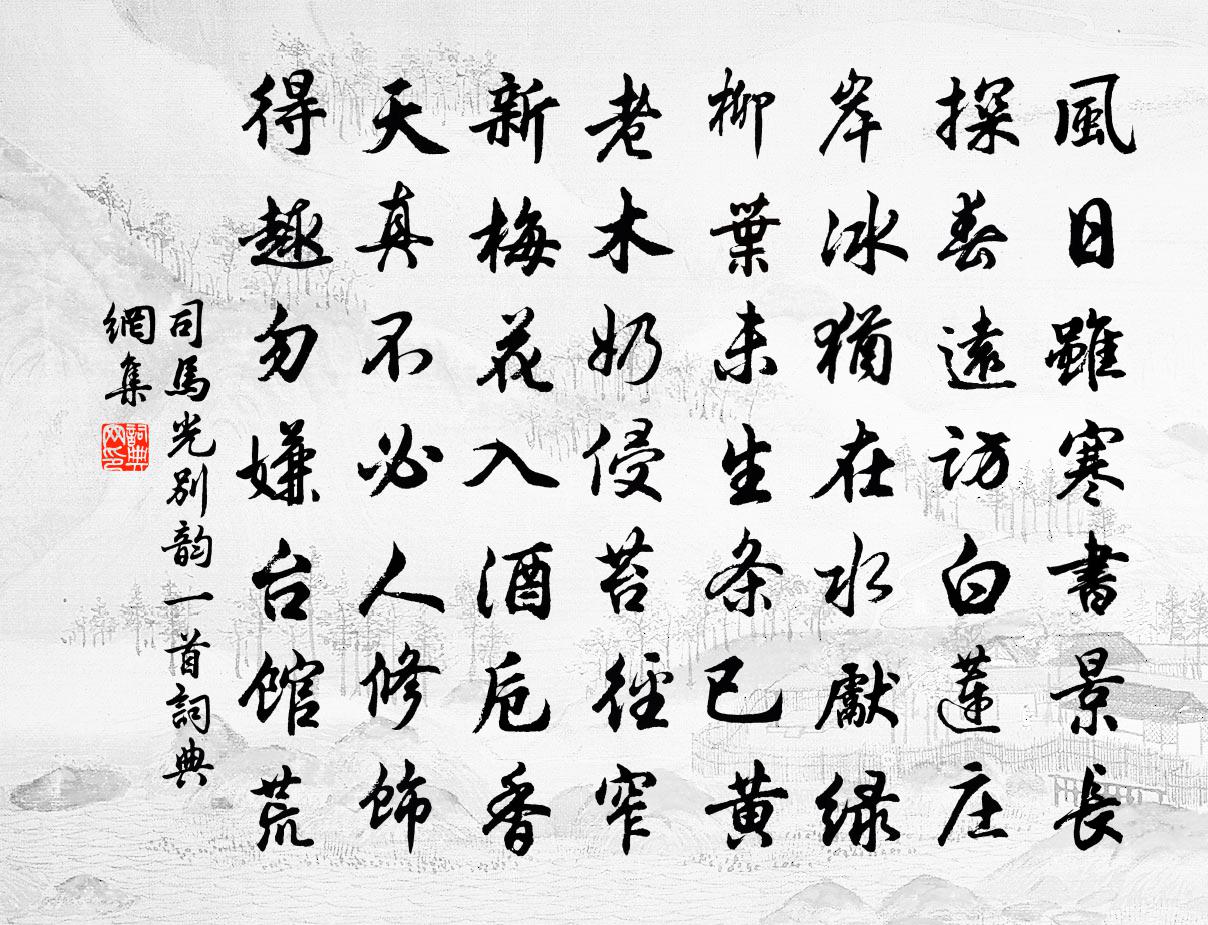 風日雖寒書景長
探春遠訪白蓮庄
岸冰猶在水獻緑
柳葉未生条已黄
老木奶侵苔徑窄
新梅花入酒卮香
天真不必人修飾
得趣勿嫌台館荒
司馬光别韵一首詞典
網集
詞典
网印